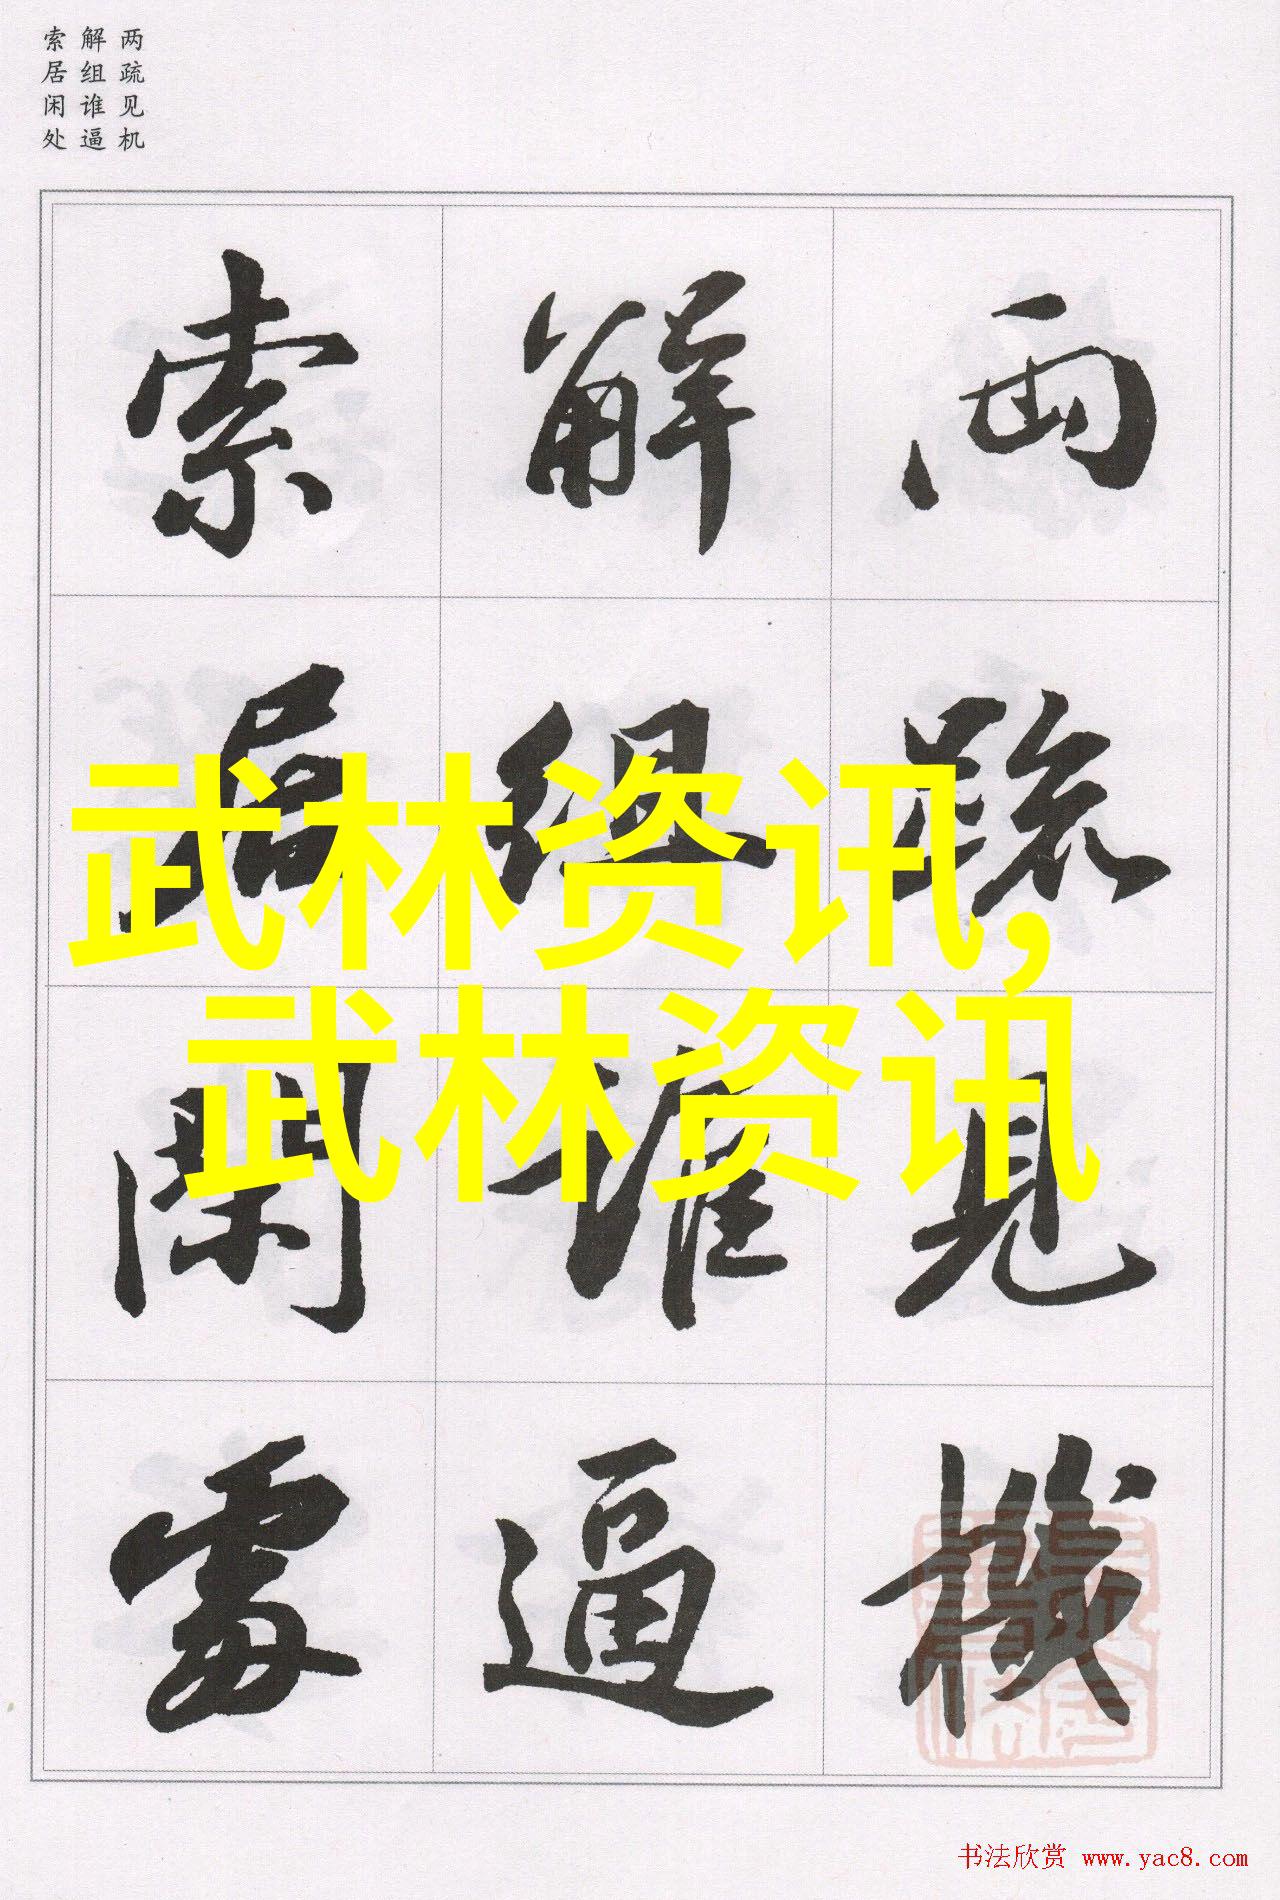 两疏见机
解组谁逼
索居闲处
兩疏見機
解組誰逼
索居閑處
武林资讯,
武林资讯
书法欣赏 www.yac8.com